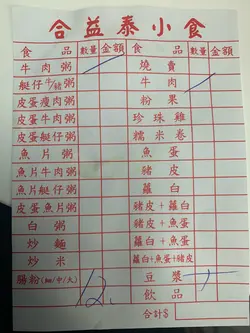 合益泰小食
食品 數量 金額 食品 數量 金額
牛肉粥 燒賣
艇仔牛/豬粥 牛肉
皮蛋瘦肉粥 粉果
皮蛋牛肉粥 珍珠雞
皮蛋艇仔粥 糯米卷
魚片粥 魚蛋
魚片牛肉粥 豬皮
魚片艇仔粥 蘿白
皮蛋魚片粥 豬皮+蘿白
白粥 豬皮+魚蛋
炒麵 蘿白+魚蛋
炒米 蘿白+魚蛋+豬皮
腸粉(小/中/大) 12 豆漿
飲品
合計$